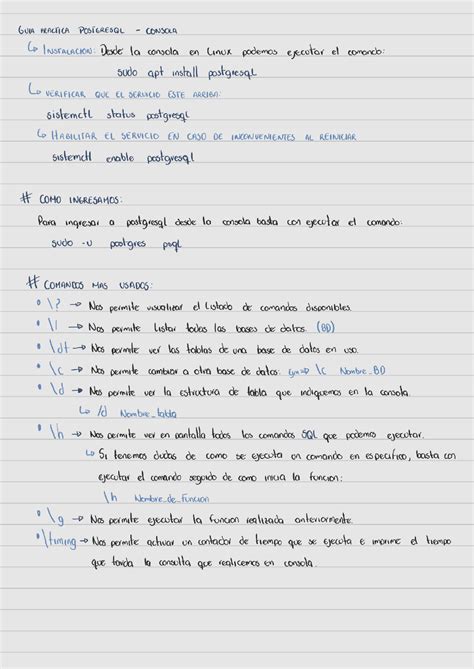 GUIA PRACTICA POSTGRESQL - CONSOLA
↳ INSTALACION: Desde la consola en Linux podemos ejecutar el comando:
sudo apt install postgresql
↳ VERIFICAR QUE EL SERVICIO ESTE ARRIBA:
sistemctl status postgresql
↳ HABILITAR EL SERVICIO EN CASO DE INCONVENIENTES AL REINICIAR
sistemctl enable postgresql
# COMO INGRESAMOS:
Para ingresar a postgresql desde la consola basta con ejecutar el comando:
sudo -u postgres psql
# COMANDOS MAS USADOS:
• \? → Nos permite visualizar el listado de comandos disponibles.
• \l → Nos permite listar todas las bases de datos. (BD)
• \dt → Nos permite ver las tablas de una base de datos en uso.
• \c → Nos permite cambiar a otra base de datos: \c Nombre_BD
• \d → Nos permite ver la estructura de tabla que indiquemos en la consola.
↳ /d Nombre_tabla
• \h → Nos permite ver en pantalla todos los comandos SQL que podemos ejecutar.
↳ Si tenemos dudas de como se ejecuta un comando en especifico, basta con
ejecutar el comando seguido de como inicia la funcion:
\h Nombre_de_funcion
• \g → Nos permite ejecutar la funcion realizada anteriormente.
• \timing → Nos permite activar un contador de tiempo que se ejecuta e imprime el tiempo
que tarda la consulta que realicemos en consola.